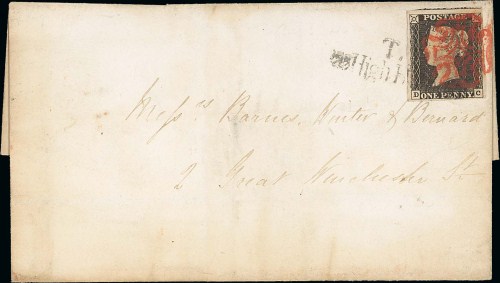 POSTAGE
T.P
High H
D ONE PENNY C
Mess.rs Barnes, Hunter & Bernard
2 Great Winchester St